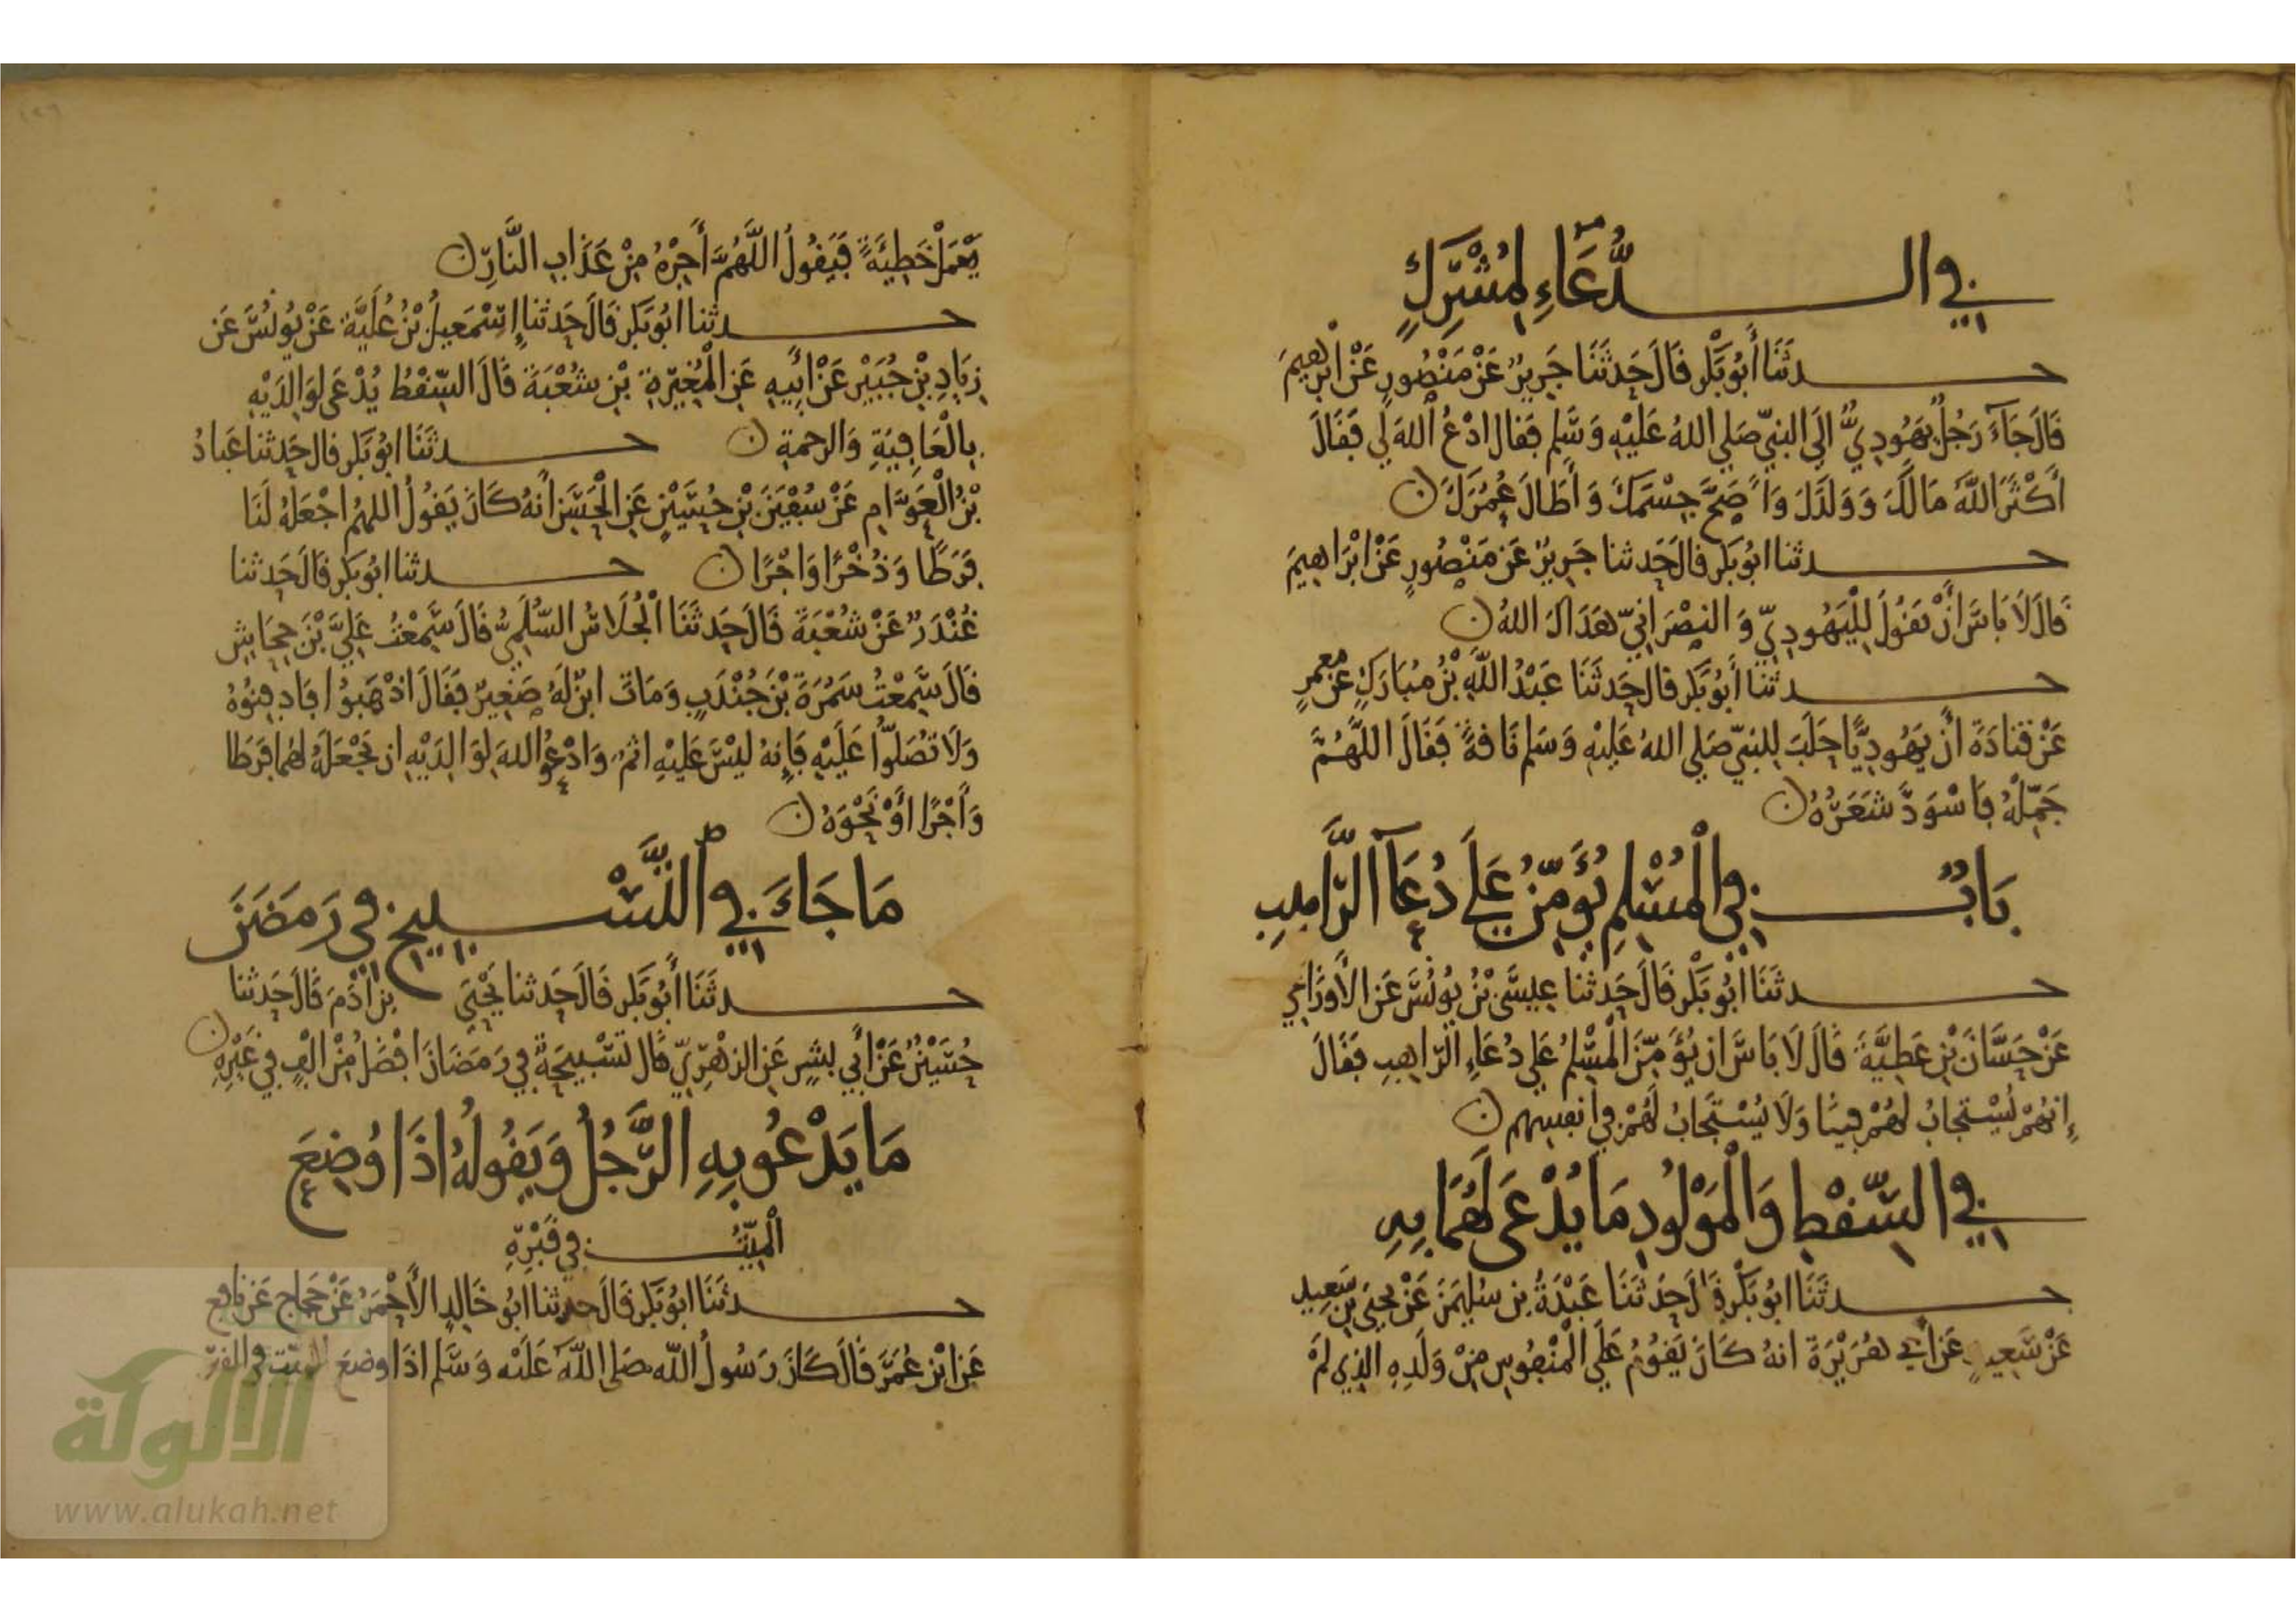 في الدُّعَاءِ لِمُشْرِكٍ
حدثَنَا أَبُو بَكْر قَالَ حَدثَنَا جَرِيرٌ عَنْ مَنْصُورٍ عَنْ ابْرٰهِيمَ
قَالَ جَآءَ رَجُلٌ يَهُودِيٌّ الَى النبيّ صَلى اللهُ عَلَيْهِ وَسَّلم فَقال ادْعُ اللهَ لي فَقَالَ
أَكْثَرَ اللَّهُ مَالَكَ وَوَلَدَكَ وَأَصَحَّ جِسْمَكَ وَأَطَالَ عُمُرَكَ ن
حدثنا ابُو بَكر قالَ حَدثنا جَرِيرٌ عَن مَنْصُورٍ عَنْ ابْرَاهِيمَ
قَالَ لَا بَاسَ أَنْ يَقُولَ لِلْيَهُودِيّ وَالنصْرَانِيّ هَدَاكَ اللهُ ن
حدثنا أَبُو بَكر قال حَدثَنَا عَبْدُ اللَّهِ بْنُ مُبَارَكٍ عَنْ مَعمرٍ
عَنْ قتادَةَ أنّ يَهُودِيًّا حَلَبَ لِلنبيّ صَلى اللهُ عَليْهِ وَسَلم نَاقةً فَقَالَ اللَّهُمَّ
جَمِّلْهُ فَاسْوَدَّ شَعَرُهُ ن
بَابٌ في الْمُسْلِمِ يُؤَمِّنُ عَلَى دُعَآ الرَّاهِبِ
حدثَنَا ابُو بَكْر قَالَ حَدثنا عِيسَى بْنُ يُونُسَ عَن الأَوزَاعي
عَنْ حَسَّانَ بْنِ عَطِيَّةَ قَالَ لَا بَاسَ ان يُؤَمِّنَ الْمُسْلمُ عَلى دُعَاءِ الرّاهِبِ فَقَالَ
إِنهُمْ يُسْتجابُ لهُمْ فينَا وَلَا يُسْتَجَابُ لَهُمْ في انفسِهم ن
في السِّقْطِ وَالْمَوْلُودِ مَا يُدْعَى لَهُمَا بِهِ
حدثَنَا ابُو بَكْر قَالَ حَدثَنَا عَبْدَةُ بن سُلَيْمٰنَ عَنْ يَحيَى بْنِ سَعِيد
عَنْ سَعِيدٍ عَن أبي هُرَيْرَةَ انهُ كَانَ يَقُومُ عَلَى الْمَنْفُوسِ مِنْ وَلَدِهِ الذِي لَمْ
يَعْمَلْ خَطِيَّةً فَيَقُولُ اللَّهُمَّ أَجِرْهُ مِنْ عَذَابِ النَّارِ ن
حدثنا ابُو بَكر قَالَ حَدثنا إسْمَعِيلُ بْنُ عُلَيَّة عَنْ يُونُسَ عَن
زِيَادِ بْنِ جُبَيْر عَنْ أَبِيهِ عَنِ الْمُغِيرَةِ بْنِ شُعْبَةَ قَالَ السِّقْطُ يُدْعَى لِوَالِدَيْهِ
بِالْعَافِيَةِ وَالرحمةِ ن حدثَنَا ابُو بَكر قال حَدثنا عَبادُ
بْنُ الْعَوَّامِ عَنْ سُفْيَنَ بْنِ حُسَيْنٍ عَنِ الْحَسَنِ أَنهُ كَانَ يَقُولُ اللهُمَّ اجْعَلْهُ لَنَا
فَرَطًا وَذُخْرًا وَاجْرًا ن حدثنا ابُو بَكر قَالَ حَدثنا
غُنْدَرٌ عَنْ شُعْبَةَ قَالَ حَدثَنَا الْجُلَاسُ السُّلَمِيُّ قَالَ سَمِعْتُ عَلِيَّ بْنَ جِحَاشٍ
قَالَ سَمِعْتُ سَمُرَةَ بْنَ جُنْدَبٍ وَمَاتَ ابنٌ لَهُ صَغِيرٌ فَقَالَ اذْهَبُوا فَادفِنُوهُ
وَلَا تُصَلُّوا عَلَيْهِ فَإِنهُ لَيْسَ عَلَيْهِ اثمٌ وَادْعُوا اللهَ لِوَالِدَيْهِ ان يَجْعَلَهُ لهُما فَرَطا
وَأَجْرًا أَوْ نَحْوَهُ ن
مَا جَاءَ في التَّسْبِيحِ في رَمَضَنَ
حدثَنَا أَبُو بَكر قَالَ حَدثنا يَحْيَى بن آدَمَ قَالَ حَدثنا
حُسَيْنٌ عَنْ أَبي بشرٍ عَنِ الزهْرِيّ قَال تَسْبِيحَةٌ في رَمَضَانَ افْضَلُ مِنْ الْفٍ في غَيْرِهِ ن
مَا يَدْعُو بِهِ الرَّجُلُ وَيَقُولُهُ اذَا وُضِعَ
الْمَيّتُ في قَبْرِهِ
حدثَنَا ابُو بَكر قَالَ حدثنا ابُو خَالِدٍ الأَحْمَرُ عَنْ حَجاج عَن نافع
عَنِ ابْنِ عُمَرَ قَالَ كَانَ رَسُولُ اللَّه صَلى اللَّهُ عَلَيْه وَسَّلم اذَا وضعَ الميّت في القبر
الألوكة
www.alukah.net